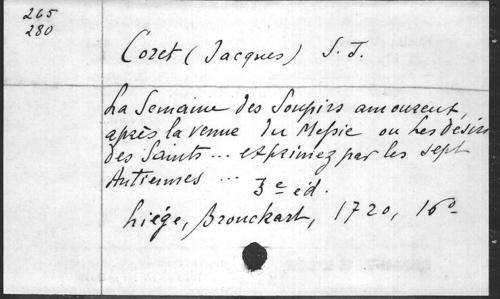 265
280
Coret (Jacques) S. J.
La Semaine des Soupirs amoureux,
après la venue du Messie ou les désirs
des Saints... exprimez par les sept
Antiennes ...
3e éd.
Liége, Bronckart, 1720, 16o